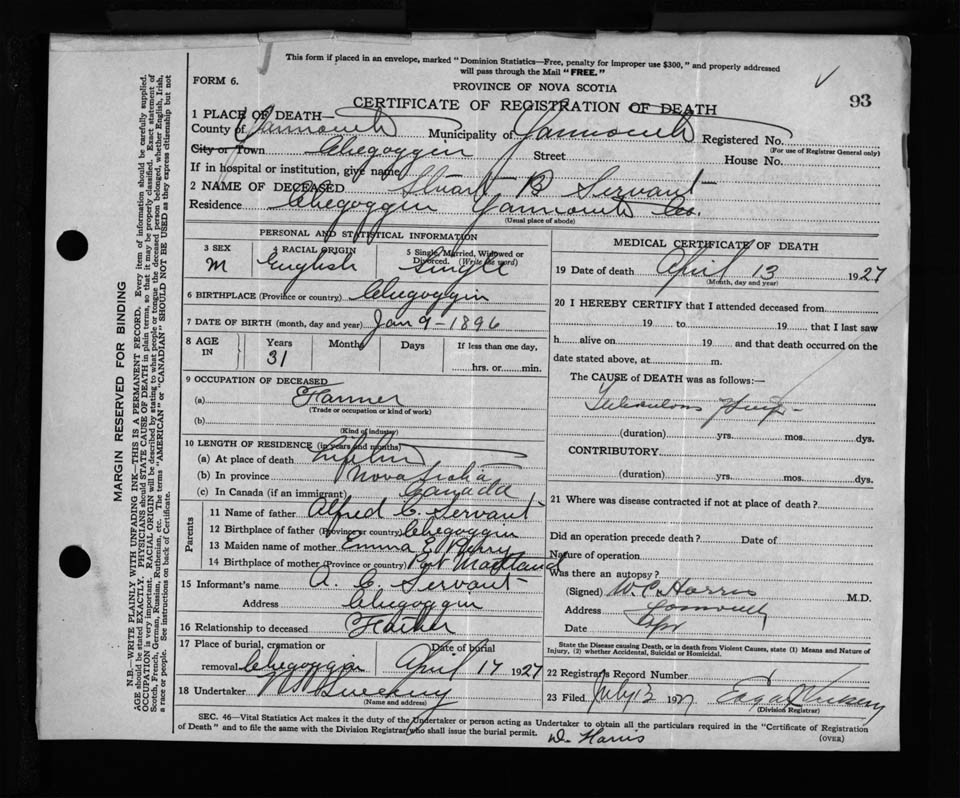 This form if placed in an envelope, marked "Dominion Statistics—Free, penalty for improper use $300," and properly addressed
will pass through the Mail "FREE."
FORM 6.
PROVINCE OF NOVA SCOTIA
CERTIFICATE OF REGISTRATION OF DEATH
93
1 PLACE OF DEATH—
County of Yarmouth Municipality of Yarmouth Registered No.
(For use of Registrar General only)
City or Town Chegoggin Street House No.
If in hospital or institution, give name
2 NAME OF DECEASED Stuart B Servant
Residence Chegoggin Yarmouth Co.
(Usual place of abode)
PERSONAL AND STATISTICAL INFORMATION
3 SEX 4 RACIAL ORIGIN 5 Single, Married, Widowed or Divorced. (Write the word)
M English Single
6 BIRTHPLACE (Province or country) Chegoggin
7 DATE OF BIRTH (month, day and year) Jan 9-1896
8 AGE IN Years Months Days If less than one day,
31 hrs. or min.
9 OCCUPATION OF DECEASED
(a) Farmer
(Trade or occupation or kind of work)
(b)
(Kind of industry)
10 LENGTH OF RESIDENCE (in years and months)
(a) At place of death
(b) In province Nova Scotia
(c) In Canada (if an immigrant) Canada
Parents
11 Name of father Alfred C. Servant
12 Birthplace of father (Province or country) Chegoggin
13 Maiden name of mother Emma E. Perry
14 Birthplace of mother (Province or country) Port Maitland
15 Informant's name A. C. Servant
Address Chegoggin
16 Relationship to deceased Father
17 Place of burial, cremation or removal Chegoggin Date of burial April 17 1927
18 Undertaker
(Name and address)
MEDICAL CERTIFICATE OF DEATH
19 Date of death April 13 1927
(Month, day and year)
20 I HEREBY CERTIFY that I attended deceased from
19 to 19 that I last saw
h alive on 19 and that death occurred on the
date stated above, at m.
The CAUSE of DEATH was as follows:—
Tuberculous
(duration) yrs. mos. dys.
CONTRIBUTORY
(duration) yrs. mos. dys.
21 Where was disease contracted if not at place of death?
Did an operation precede death? Date of
Nature of operation
Was there an autopsy?
(Signed) W. C. Harris M.D.
Address Yarmouth
Date
State the Disease causing Death, or in death from Violent Causes, state (1) Means and Nature of
Injury, (2) whether Accidental, Suicidal or Homicidal.
22 Registrar's Record Number
23 Filed July 13 1927
(Division Registrar)
SEC. 46—Vital Statistics Act makes it the duty of the Undertaker or person acting as Undertaker to obtain all the particulars required in the "Certificate of Registration
of Death" and to file the same with the Division Registrar who shall issue the burial permit.
Dr. Harris
(OVER)
MARGIN RESERVED FOR BINDING
N.B.—WRITE PLAINLY WITH UNFADING INK—THIS IS A PERMANENT RECORD. Every item of information should be carefully supplied.
AGE should be stated EXACTLY. PHYSICIANS should STATE CAUSE OF DEATH in plain terms, so that it may be properly classified. Exact statement of
OCCUPATION is very important. RACIAL ORIGIN will be described by stating to what people or tongue the deceased person belonged, whether English, Irish,
Scotch, French, German, Russian, Ruthenian, etc. The terms "AMERICAN" or "CANADIAN" SHOULD NOT BE USED as they express citizenship but not
a race or people. See instructions on back of Certificate.